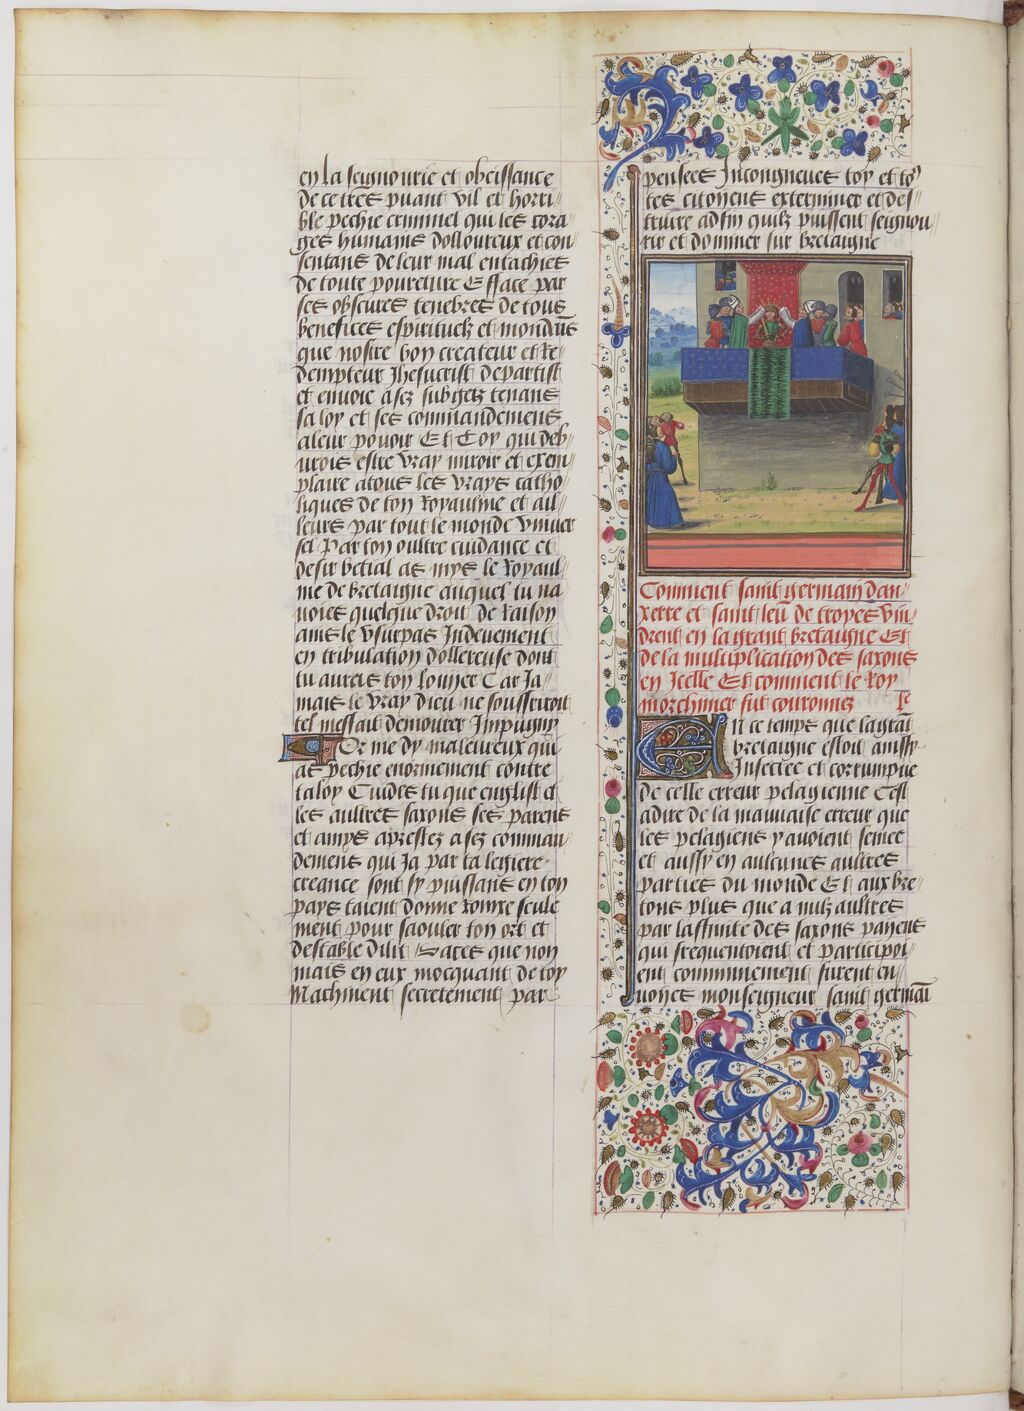 en la seignourie et obeissance
de ce tres puant vil et horri-
ble pechie criminel qui les cora
ges humains dolloureux et con
sentans de leur mal entachies
de toute pourreture Efface par
ses obscures tenebres de tous
benefices espirituelz et mondains
que nostre bon createur et Re-
dempteur Jhesucrist departist
et envoie a ses subgetz tenans
sa loy et ses commandemens
a leur povoir Et Toy qui deb-
vrois estre vray miroir et exem
plaire a tous les vrays catho
liques de ton Royaulme et ail-
leurs par tout le monde univer
sel Par ton oultre cuidance et
desir bestial as mys le Royaul-
me de bretaigne auquel tu na
voies quelque droit de Raison
ains le usurpas Indeuement
en tribulation dollereuse dont
tu auras ton louyer Car Ja-
mais le vray dieu ne souffriroit
tel meffait demourer Impugny
Or me dy maleureux qui
as pechie enormement contre
ta loy Cuides tu que englist et
les aultres saxons ses parens
et amys aprestez a ses comman-
demens qui Ja par ta legiere-
creance sont sy puissans en ton
pays taient donne Ronixe seule
ment pour saouler ton ort et
destable dilit Saces que non
mais en eux mocquant de toy
Machinent secretement par
pensees Incongneues toy et to9
tes citoyens exterminer et des-
truire adfin quilz puissent seignou-
rir et dominer sur bretaigne
Comment saint germain dau-
xerre et saint leu de troyes vin-
drent en la grant bretaigne Et
de la multiplication des saxons
en Icelle Et comment le Roy
morthimer fut couronne
En ce temps que la grant
bretaigne estoit ainssy
Infectee et corrumpue
de celle erreur pelagienne Cest
adire de la mauvaise erreur que
les pelagiens y avoient semee
et aussy en aulcunes aultres
parties du monde Et aux bre-
tons plus que a nulz aultres
par laffinite des saxons payens
qui frequentoient et participoi-
ent communement furent en-
voyes monseigneur saint germain